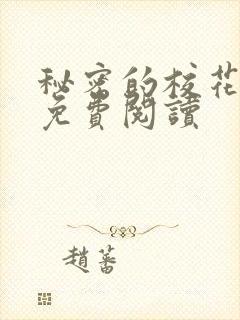 秘密的校花
免費閱讀
趙蕃